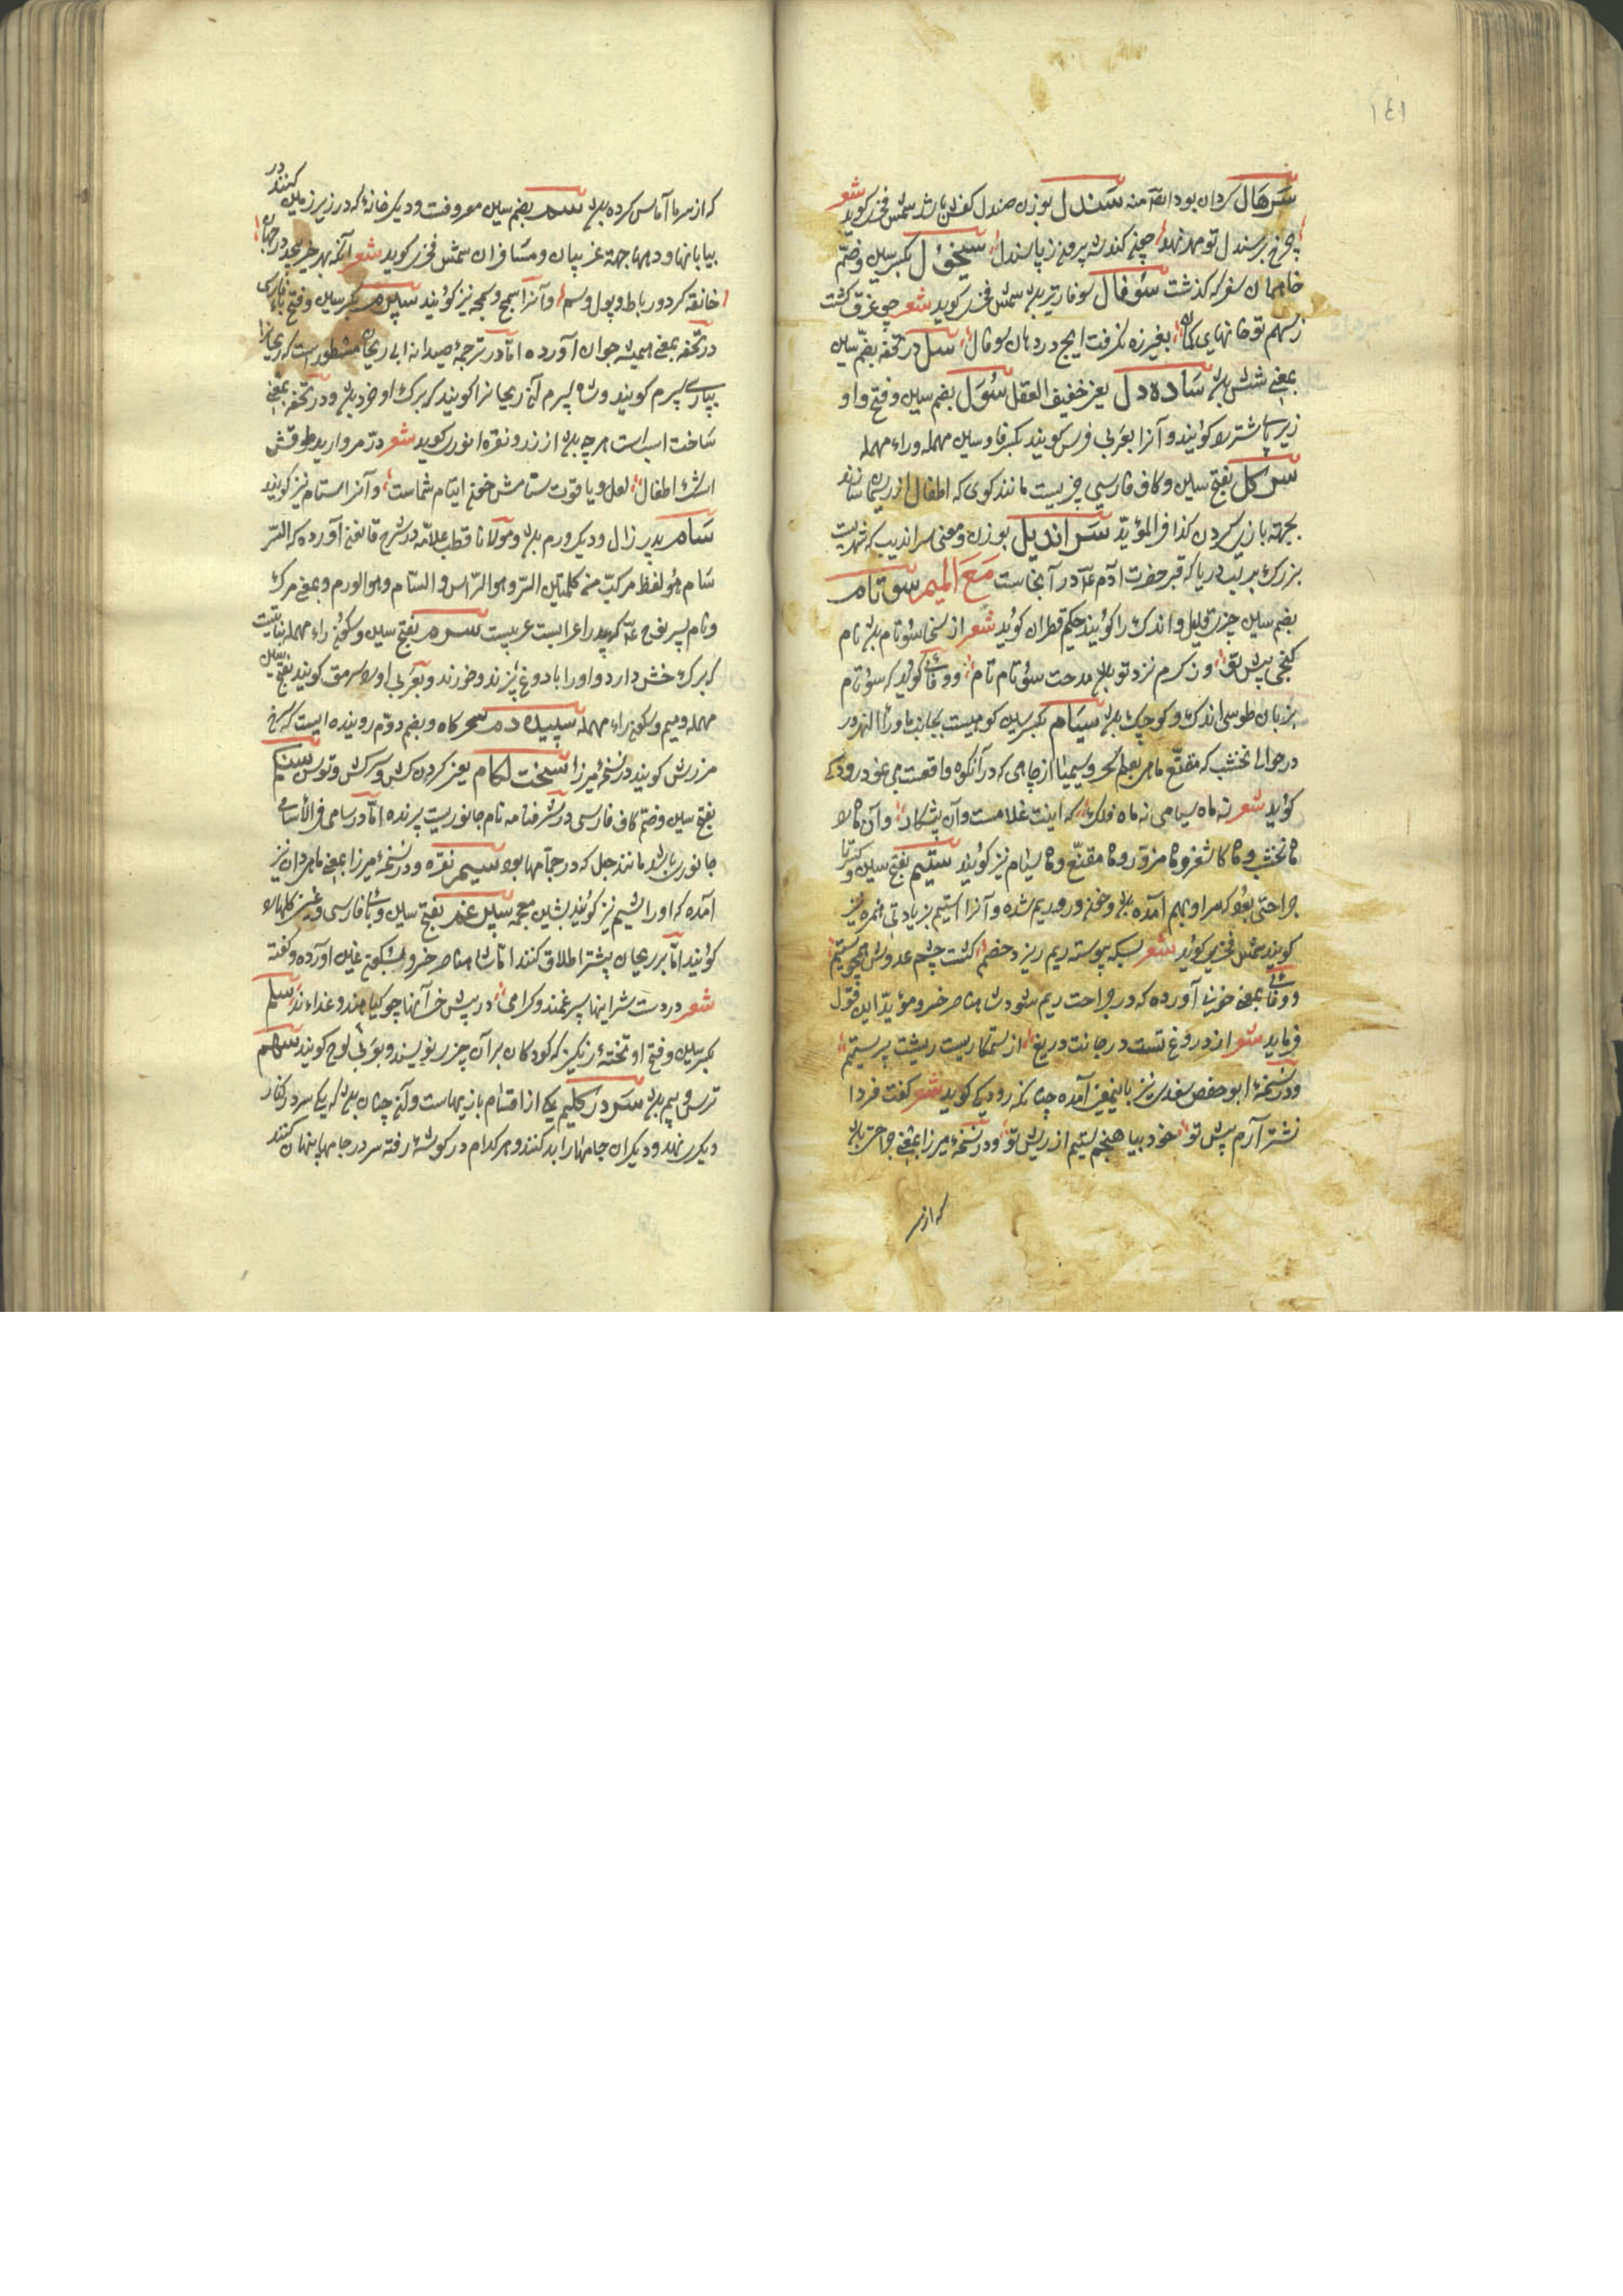 ١٤١
سرهال کردان بود ایضا منه سندل بوزن صندل کفش باشد شمس فخری کوید شعر
چرخ بر سندل تو مهر نهد چون کند شه پرون ز پا سندل سیخول بکسر سین وضم
خا همان سغر که گذشت سوفال سوفار تیر باشد شمس فخری کوید شعر چو غرق کشت
ز سهم تو خانهای کمان بغیر زه نگرفت ایچ در دهان سوفال سل در تحفه بضم سین
بمعنی شش باشد ساده دل یعنی خفیف العقل سول بضم سین وفتح واو
زیر پای شتر را کویند و آنرا بعربی فرسن کویند بکسر فا وسین مهمله وراء مهمله
سرکل بفتح سین وکاف فارسی چیزیست مانند کوی که اطفال از ریسمان سازند
بجهة بازی کردن کذا فی المؤید سراندیل بوزن ومعنی سراندیب که شهریست
بزرک بر لب دریا که قبر حضرت آدم در آنجاست مع المیم سوتام
بضم سین چیزی قلیل واندک را کویند حکیم قطران کوید شعر از سخا سوتام باشد نام
کنجی پیش تو وز کرم نزد تو باشد مدحت سوتام تام ووفائی کوید که سوتام
بزبان طوسی اندک وکوچک باشد سیام بکسر سین کوهیست بجانب ماوراء النهر در
در حوالی نخشب که مقنع ماهی بعلم سحر وسیمیا از چاهی که در آنکوه واقعست می نمود رودکی
کوید شعر نه ماه سیامی نه ماه فلک که اینت غلامست وآن پیشکار وآن ماه را
ماه نخشب وماه کاشغر وماه مزور وماه مقنع وماه سنام نیز کویند ستیم بفتح سین وکسر تا
جراحتی بود که سر او بهم آمده باشد وخون درو ریم شده و آنرا استیم بزیادتی همزه نیز
کویند شمس فخری کوید شعر بسکه پیوسته ریم ریزد خصم کشت چشم عدوش همچو ستیم
ووفائی بمعنی خونی آورده که در جراحت ریم شود شاه ناصر خسرو مؤید این قول
فرماید شعر از دروغ تست در جانت دریغ از ستمکاریست ریشت پر ستیم
ودر نسخهٔ ابو حفص سغدی نیز باینمعنی آمده چنانکه رودکی کوید شعر کفت فردا
نشتر آرم پیش تو خود بیاهنجم ستیم از ریش تو ودر نسخهٔ میرزا بمعنی جراحتی باشد
که از سر
که از سرما آماس کرده باشد سم بضم سین معروفست ودیکر خانهٔ که در زیر زمین کنند در
بیابانها ودهها جهة غریبان ومسافران شمس فخری کوید شعر آنکه بهر خیر بجد در جهان
خانقه کرد ورباط وپول وسم و آنرا سمج وسمجه نیز کویند سپرم بکسر سین وفتح باء فارسی
در تحفه بمعنی همیشه جوان آورده اما در ترجمهٔ صیدنه ابی ریحان مسطور است که ریحانرا
بپارسی سپرم کویند وشاه سپرم آن ریحانرا کویند که برک او خرد باشد ودر تحفه بمعنی
ساخت اسب است هر چه باشد از زر ونقره انوری کوید شعر در مروارید طوقش
اشک اطفال لعل ویاقوت ستامش خون ایتام شماست و آنرا استام نیز کویند
سام پدر زال ودیکر ورم باشد ومولانا قطب علامه در شرح قانون آورده که السر
سام هو لفظ مرکب من کلمتین السر وهو الراس والسام وهو الورم وبمعنی مرک
ونام پسر نوح که پدر اعرابست عربیست سرم بفتح سین وسکون راء مهمله نباتیست
که برک خش دارد واورا با دوغ پزند وخورند وبعربی اورا سرمق کویند بفتح سین
مهمله ومیم وسکون راء مهمله سپیده دم سحرکاه وبضم دوم روینده ایست که سرخ
مرزش کویند در نسخهٔ میرزا سخت لکام یعنی کردن کش وسرکش وتوسن سنکم
بفتح سین وضم کاف فارسی در شرفنامه نام جانوریست پرنده اما در سامی فی الأسامی
جانوری باشد مانند جعل که در حمامها بود سیم نقره ودر نسخهٔ میرزا بمعنی ماهی دان نیز
آمده که اورا شیم نیز کویند بشین معجمه سپرغم بفتح سین وباء فارسی وغین کلهارا
کویند اما بر ریحان بیشتر اطلاق کنند اما شاه ناصر خسرو بسکون غین آورده وکفته
شعر در دست شر اینها سپرغمند وکرامی در پیش خر آنها چو کیاهند وغذاءند سلم
بکسر سین وفتح او تختهٔ رنکین که کودکان بر آن چیزی نویسند وبعربی لوح کویند سهم
ترس وبیم باشد سر در کلیم یکی از اقسام بازیهاست و آن چنان باشد که یکی سر در کنار
دیکری نهد ودیکران جامها را بدل کنند وهر کدام در کوشهٔ رفته سر در جامها پنهان کنند